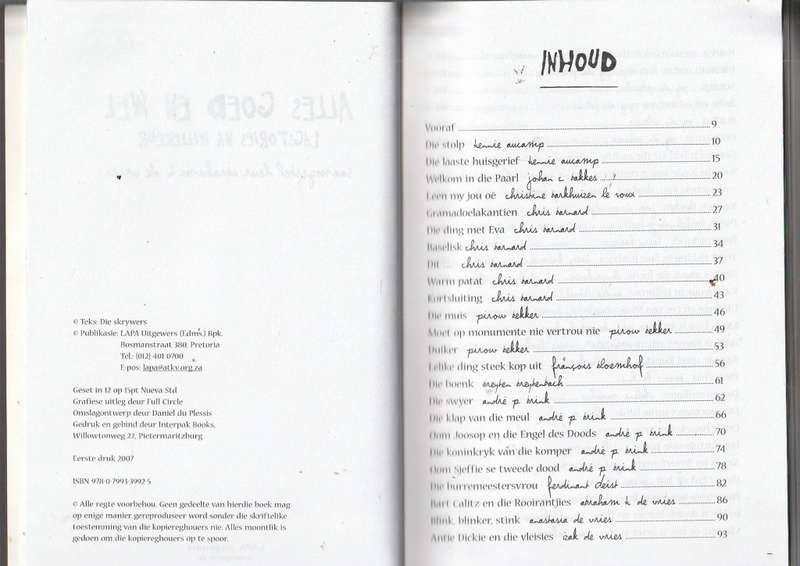 © Teks: Die skrywers
© Publikasie: LAPA Uitgewers (Edms.) Bpk.
Bosmanstraat 380, Pretoria
Tel.: (012) 401 0700
E-pos: lapa@atkv.org.za
Geset in 12 op 15pt Nueva Std
Grafiese uitleg deur Full Circle
Omslagontwerp deur Daniel du Plessis
Gedruk en gebind deur Interpak Books,
Willowtonweg 22, Pietermaritzburg
Eerste druk 2007
ISBN 978-0-7993-3992-5
© Alle regte voorbehou. Geen gedeelte van hierdie boek mag
op enige manier gereproduseer word sonder die skriftelike
toestemming van die kopiereghouers nie. Alles moontlik is
gedoen om die kopiereghouers op te spoor.
INHOUD
Vooraf 9
Die stolp hennie aucamp 10
Die laaste huisgerief hennie aucamp 15
Welkom in die Paarl johan c bakkes 20
Leen my jou oë christine barkhuizen le roux 23
Gramadoelakantien chris barnard 27
Die ding met Eva chris barnard 31
Baselisk chris barnard 34
Dit ... chris barnard 37
Warm patat chris barnard 40
Kortsluiting chris barnard 43
Die muis pirow bekker 46
Moet op monumente nie vertrou nie pirow bekker 49
Duiker pirow bekker 53
Lelike ding steek kop uit françois bloemhof 56
Die boenk breyten breytenbach 61
Die swyer andré p brink 62
Die klap van die meul andré p brink 66
Oom Joosop en die Engel des Doods andré p brink 70
Die koninkryk van die komper andré p brink 74
Oom Sjeffie se tweede dood andré p brink 78
Die burremeestersvrou ferdinant deist 82
Bart Calitz en die Rooirantjies abraham h de vries 86
Blink, blinker, stink anastasia de vries 90
Antie Dickie en die vleisies izak de vries 93